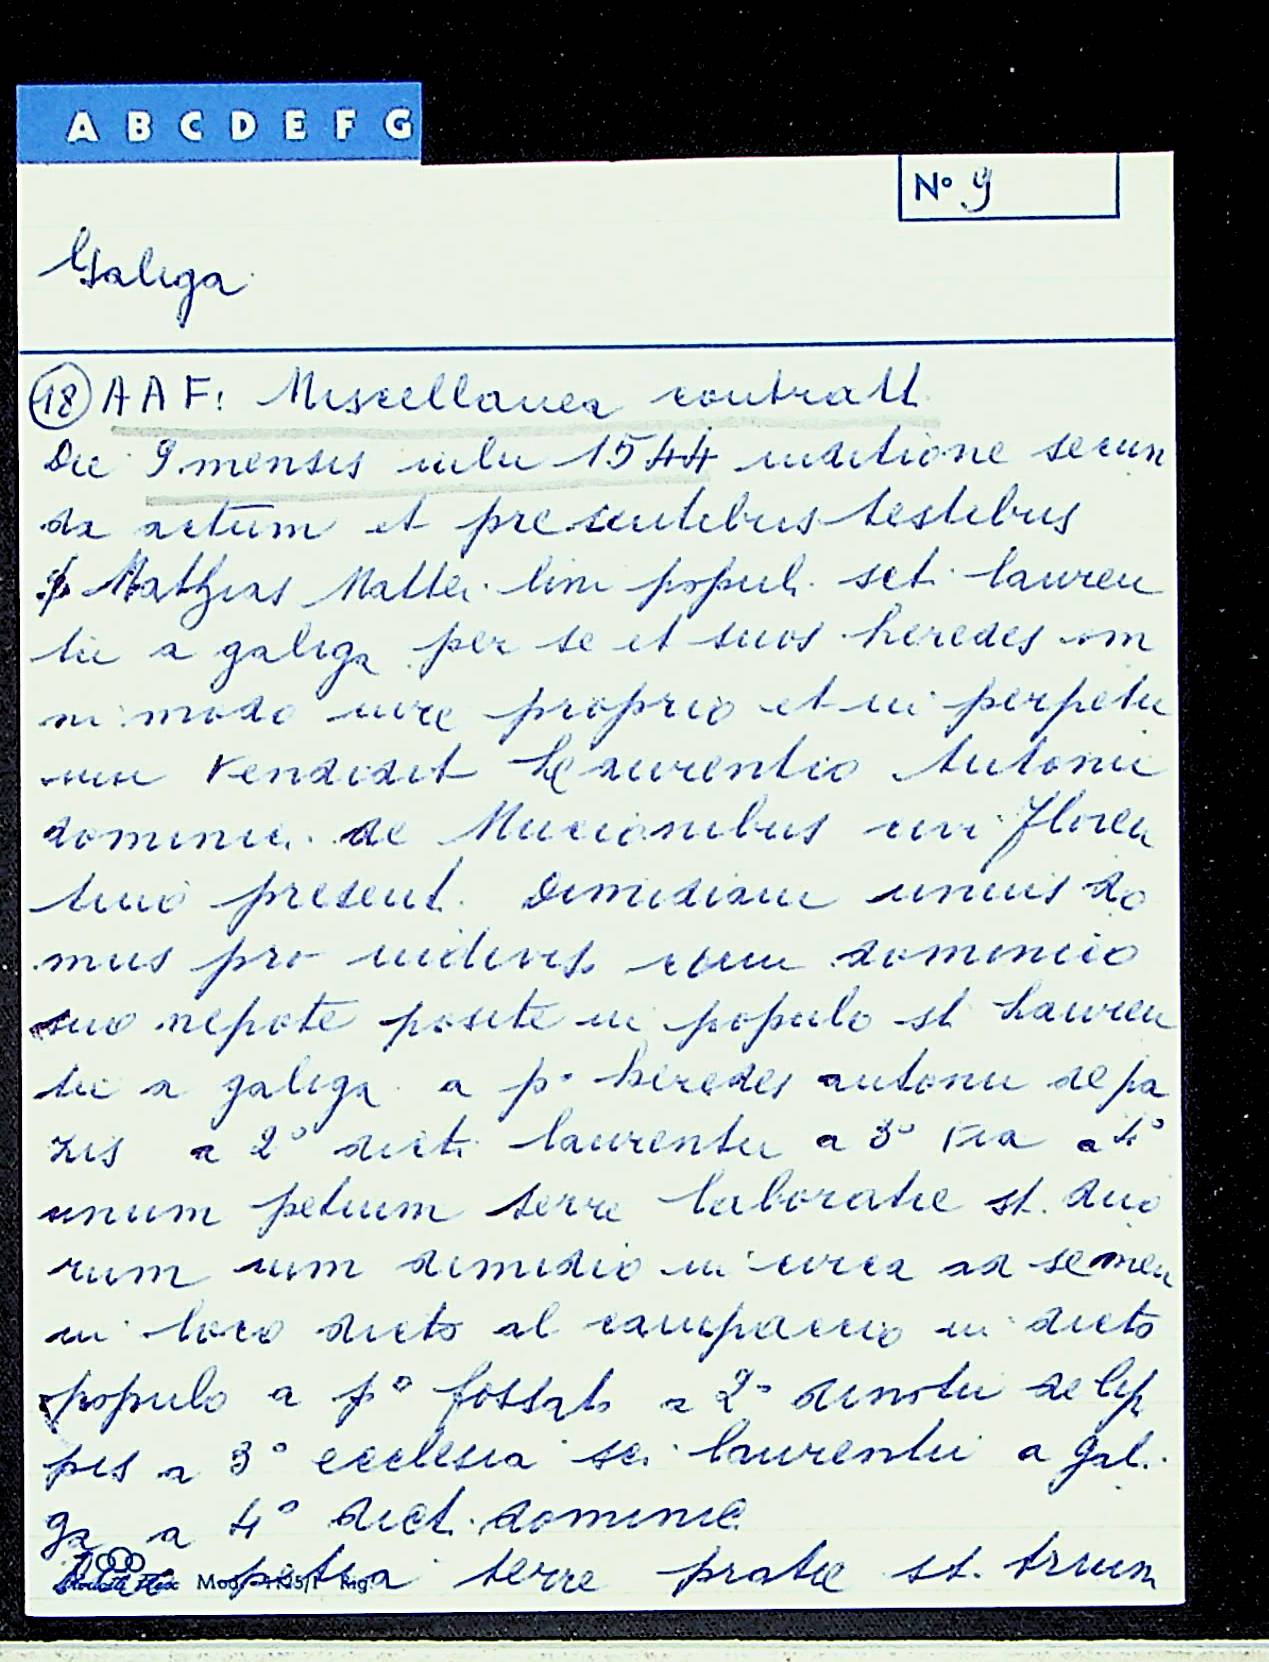 A B C D E F G
Nº 9
Galiga
(18) A A F: Miscellanea contratt.
Die 9 mensis iulii 1544 inditione secun
da actum et presentibus testibus
Mathias Mattei lini popul. scti. lauren
tii a galiga per se et suos heredes om
ni modo iure proprio et in perpetu
um vendidit Laurentio Antonii
dominici de Mucionibus civi floren
tino present. Dimidiam unius do
mus pro indivis. cum dominico
suo nepote posite in populo st. Lauren
tii a galiga a pº heredes antonii de pa
zis a 2º dicti laurentii a 3º via a 4º
unum petium terre laboratie st. duo
rum cum dimidio in circa ad semen
in loco dicto al campaccio in dicto
populo a pº fossat. a 2º de lip
pis a 3º ecclesia sci. laurentii a gal.
ga a 4º dict. dominic.
petia terre pratie st. trium
Mod.